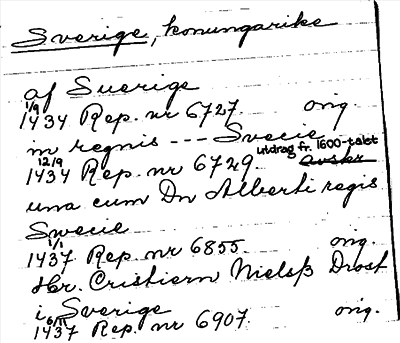 Sverige, konungarike
af Suerige
1/9
1434 Rep. nr 6727. orig.
in regnis --- Svecie
12/9 utdrag fr. 1600-talet
1434 Rep. nr 6729. avskr
una cum Dn Alberti regis
Swecie
1/1
1437 Rep. nr 6855 orig.
Hr. Cristiern Nielsß Drost
i Sverige
1437 Rep. nr 6907. orig.